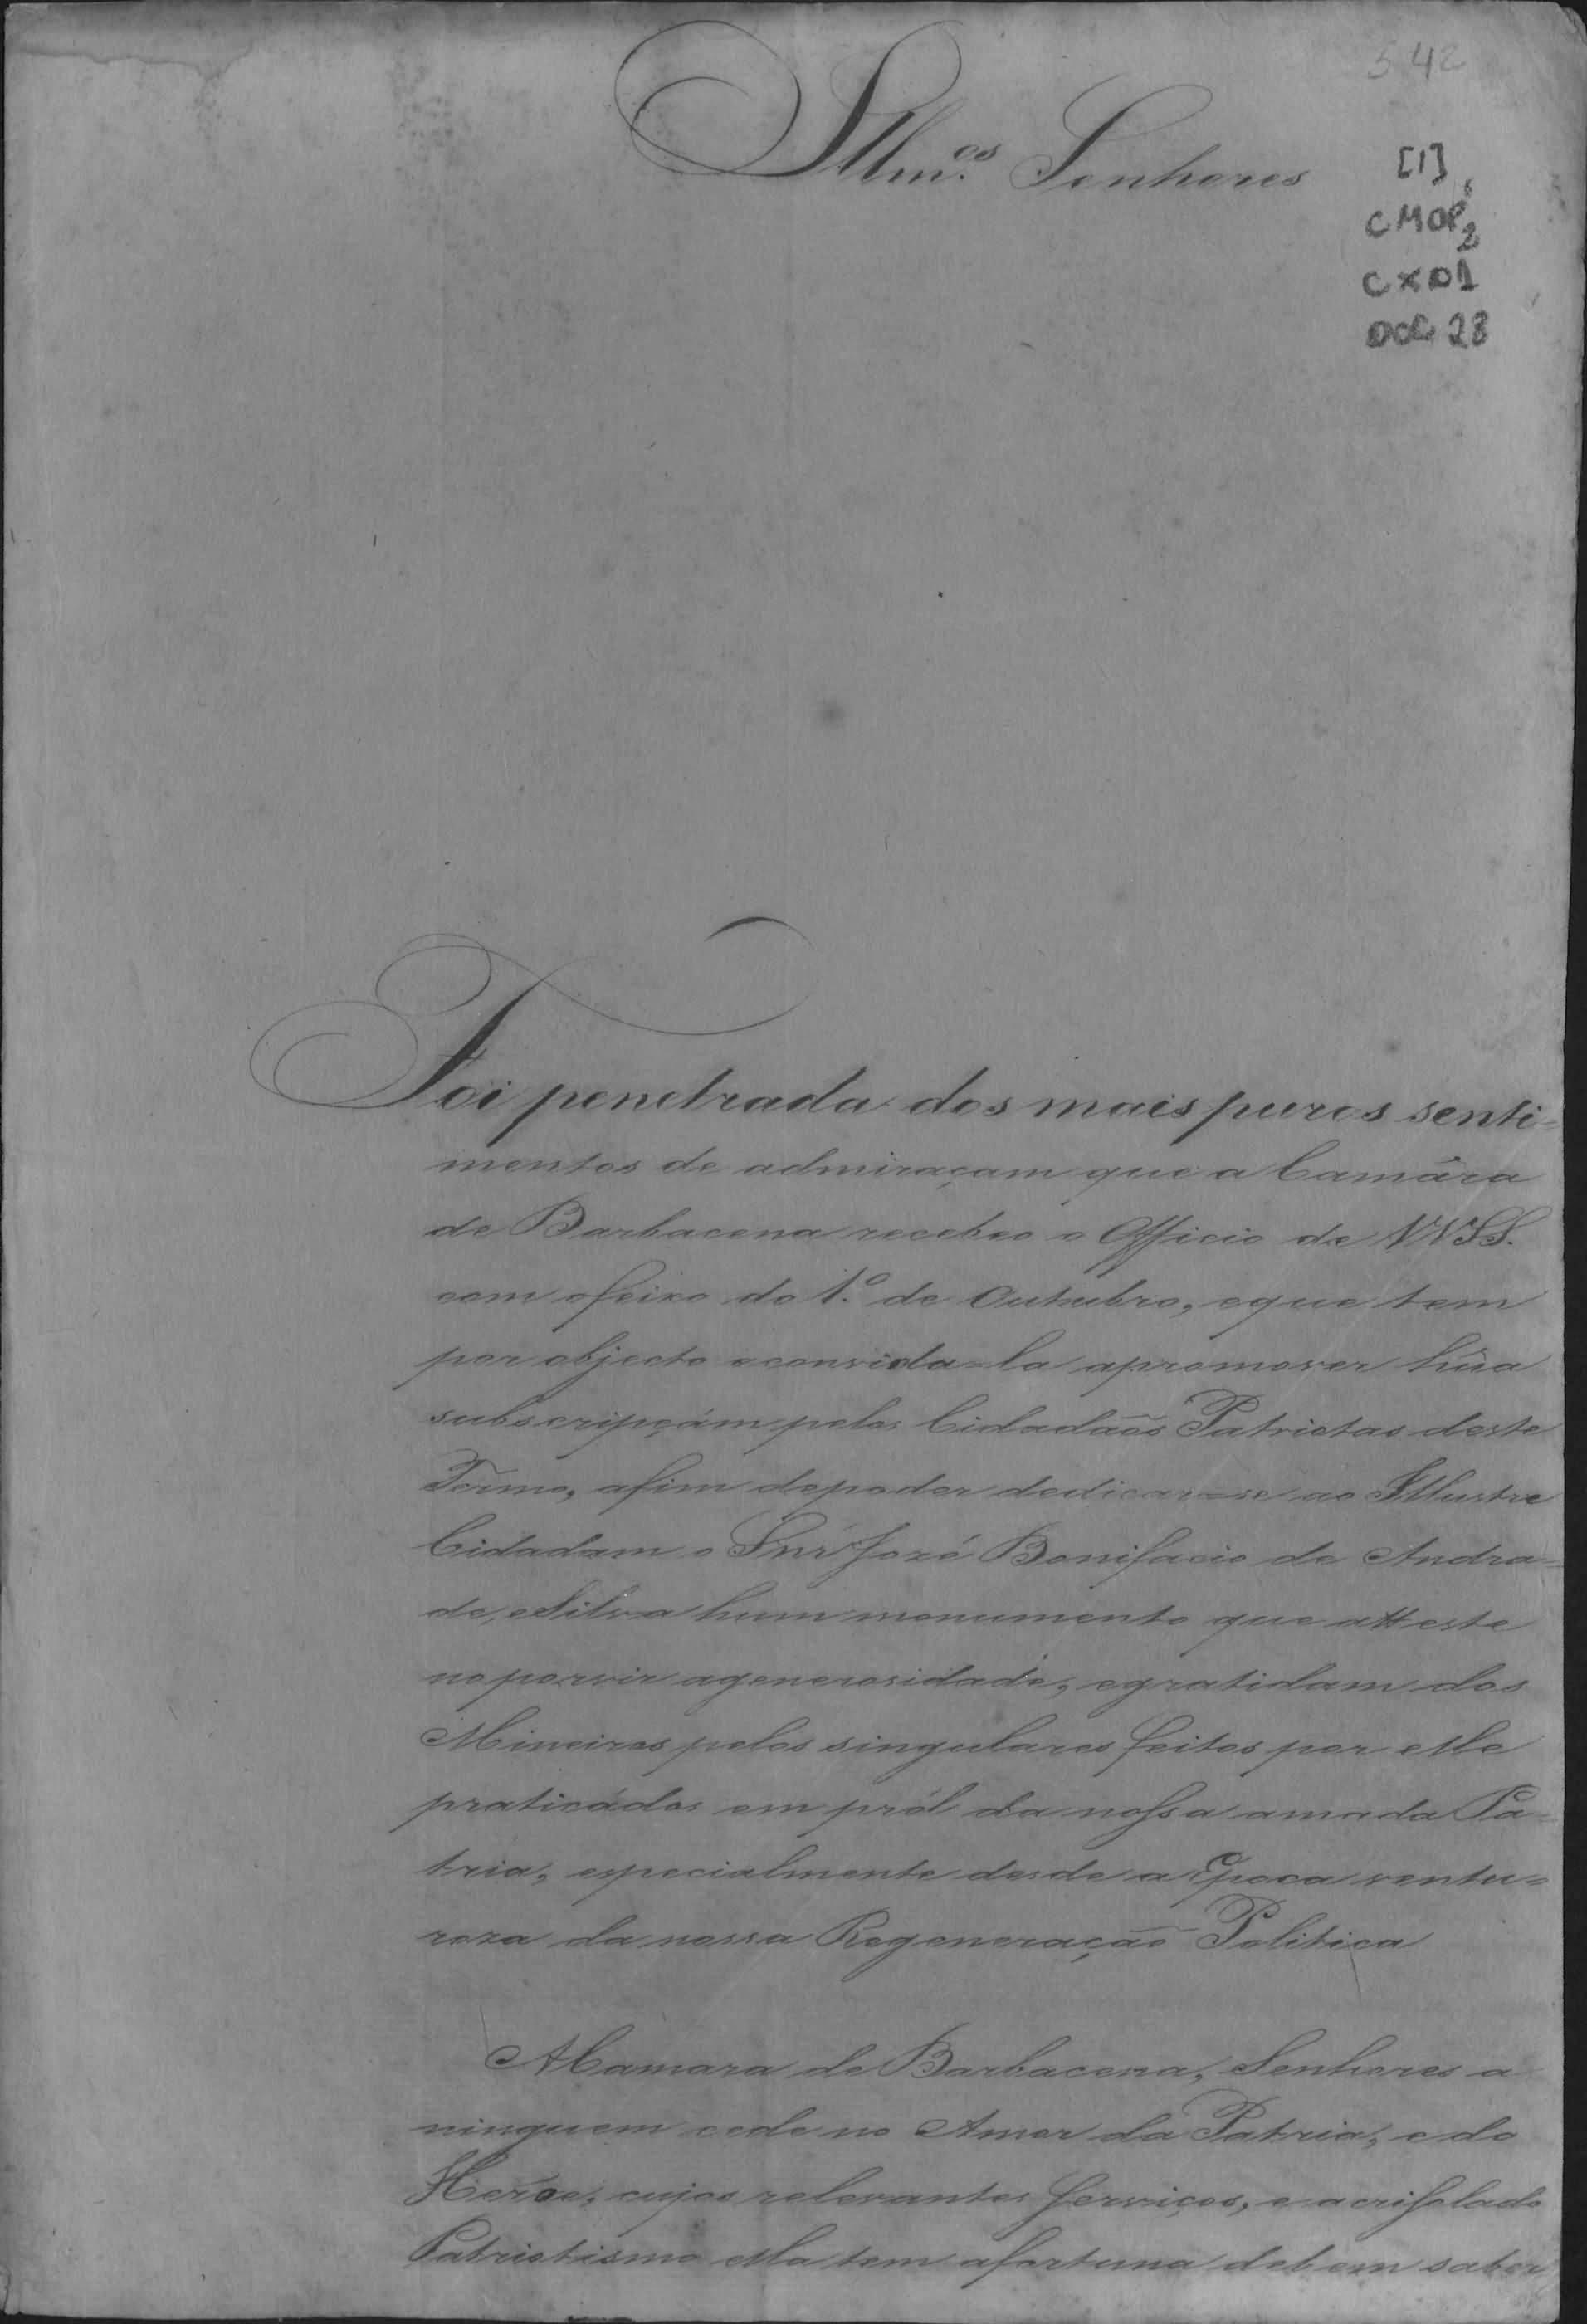 542
Illm.ºs Senhores
[1]
CMOP2
CX01
DOC 28
Foi penetrada dos mais puros senti=
mentos de admiraçam que a Camára
de Barbacena recebeo o Officio de VVSS.
com ofeixo do 1.º de Outubro, eque tem
por objecto o convida-la apromover hũa
subscripçám pelos Cidadaõs Patriotas deste
Termo, afim depoder dedicar=se ao Illustre
Cidadam o Snr̃ Jozé Bonifacio de Andra=
de, eSilva hum monumento que atteste
noporvir agenerosidade, egratidam dos
Mineiros pelos singulares feitos por elle
praticádos em prol da nossa amada Pa=
tria, especialmente desde a Epoca ventu=
roza da nossa Regeneraçaõ Politica
A Camara de Barbacena, Senhores a
ninguem cede no Amor da Patria, e do
Heróe, cujos relevantes serviços, e acrisolado
Patriotismo ella tem afortuna debem saber